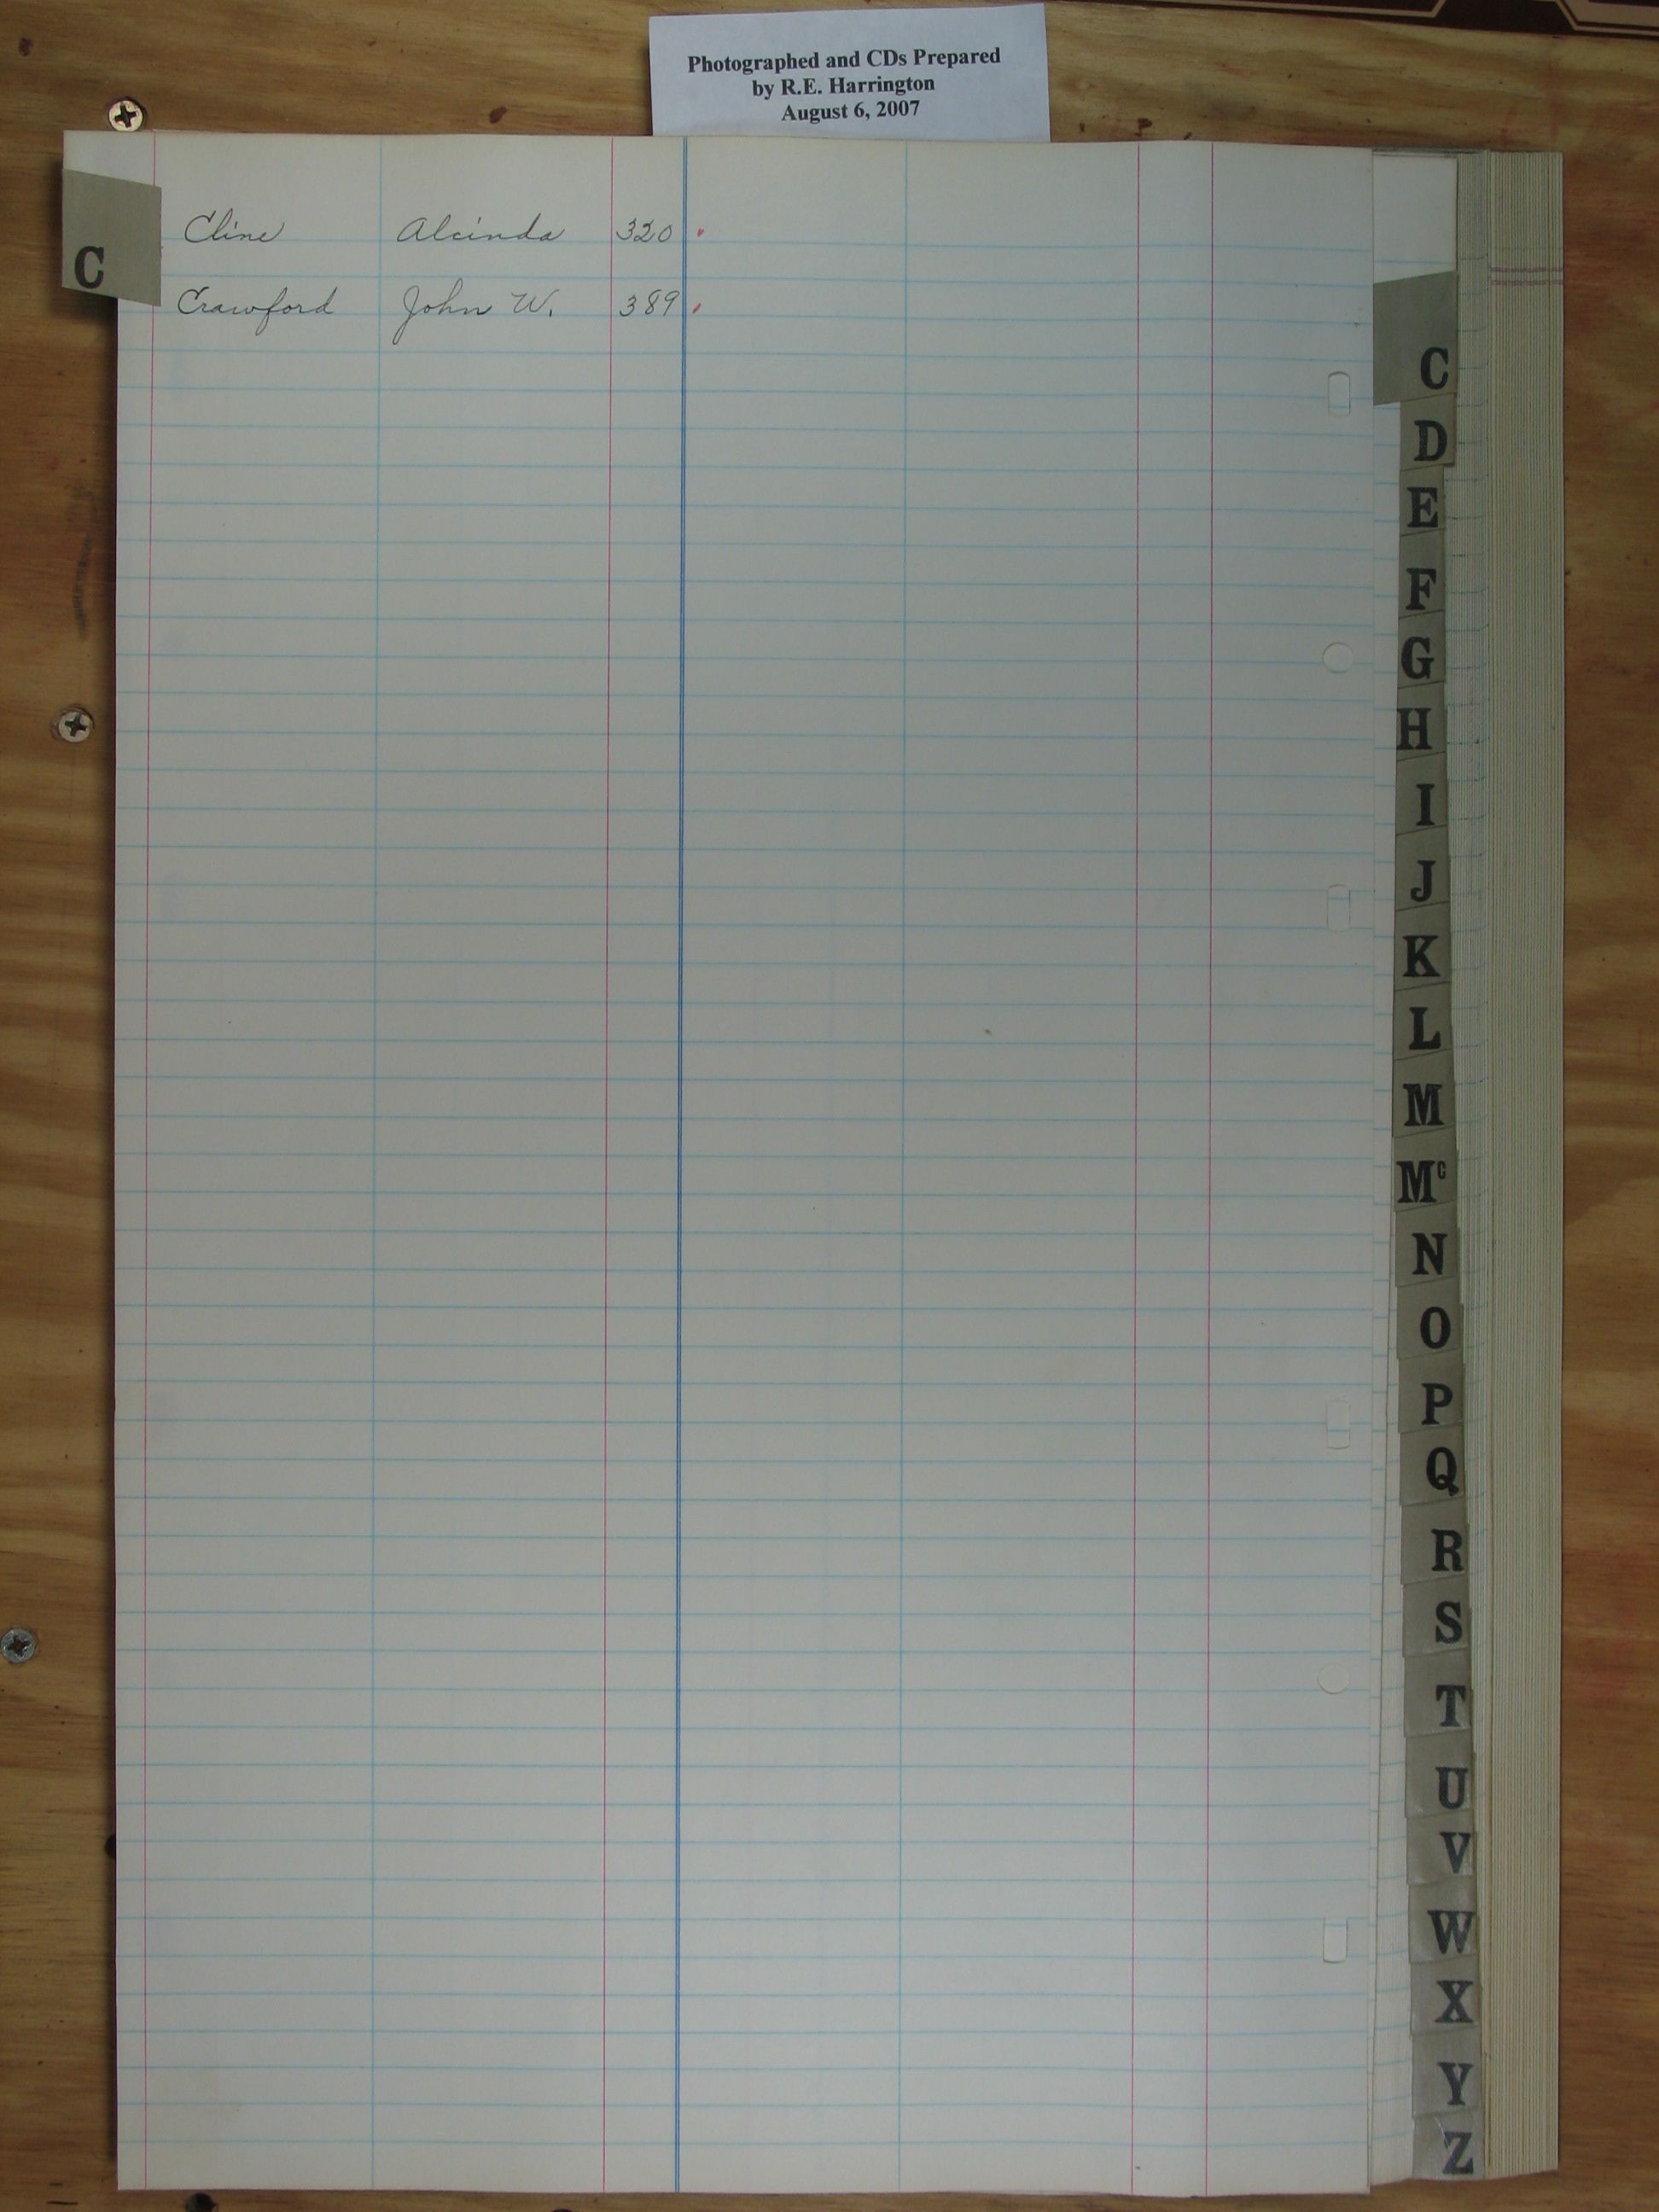 Photographed and CDs Prepared
by R.E. Harrington
August 6, 2007
C
Cline Alcinda 320
Crawford John W. 389
C
D
E
F
G
H
I
J
K
L
M
Mc
N
O
P
Q
R
S
T
U
V
W
X
Y
Z